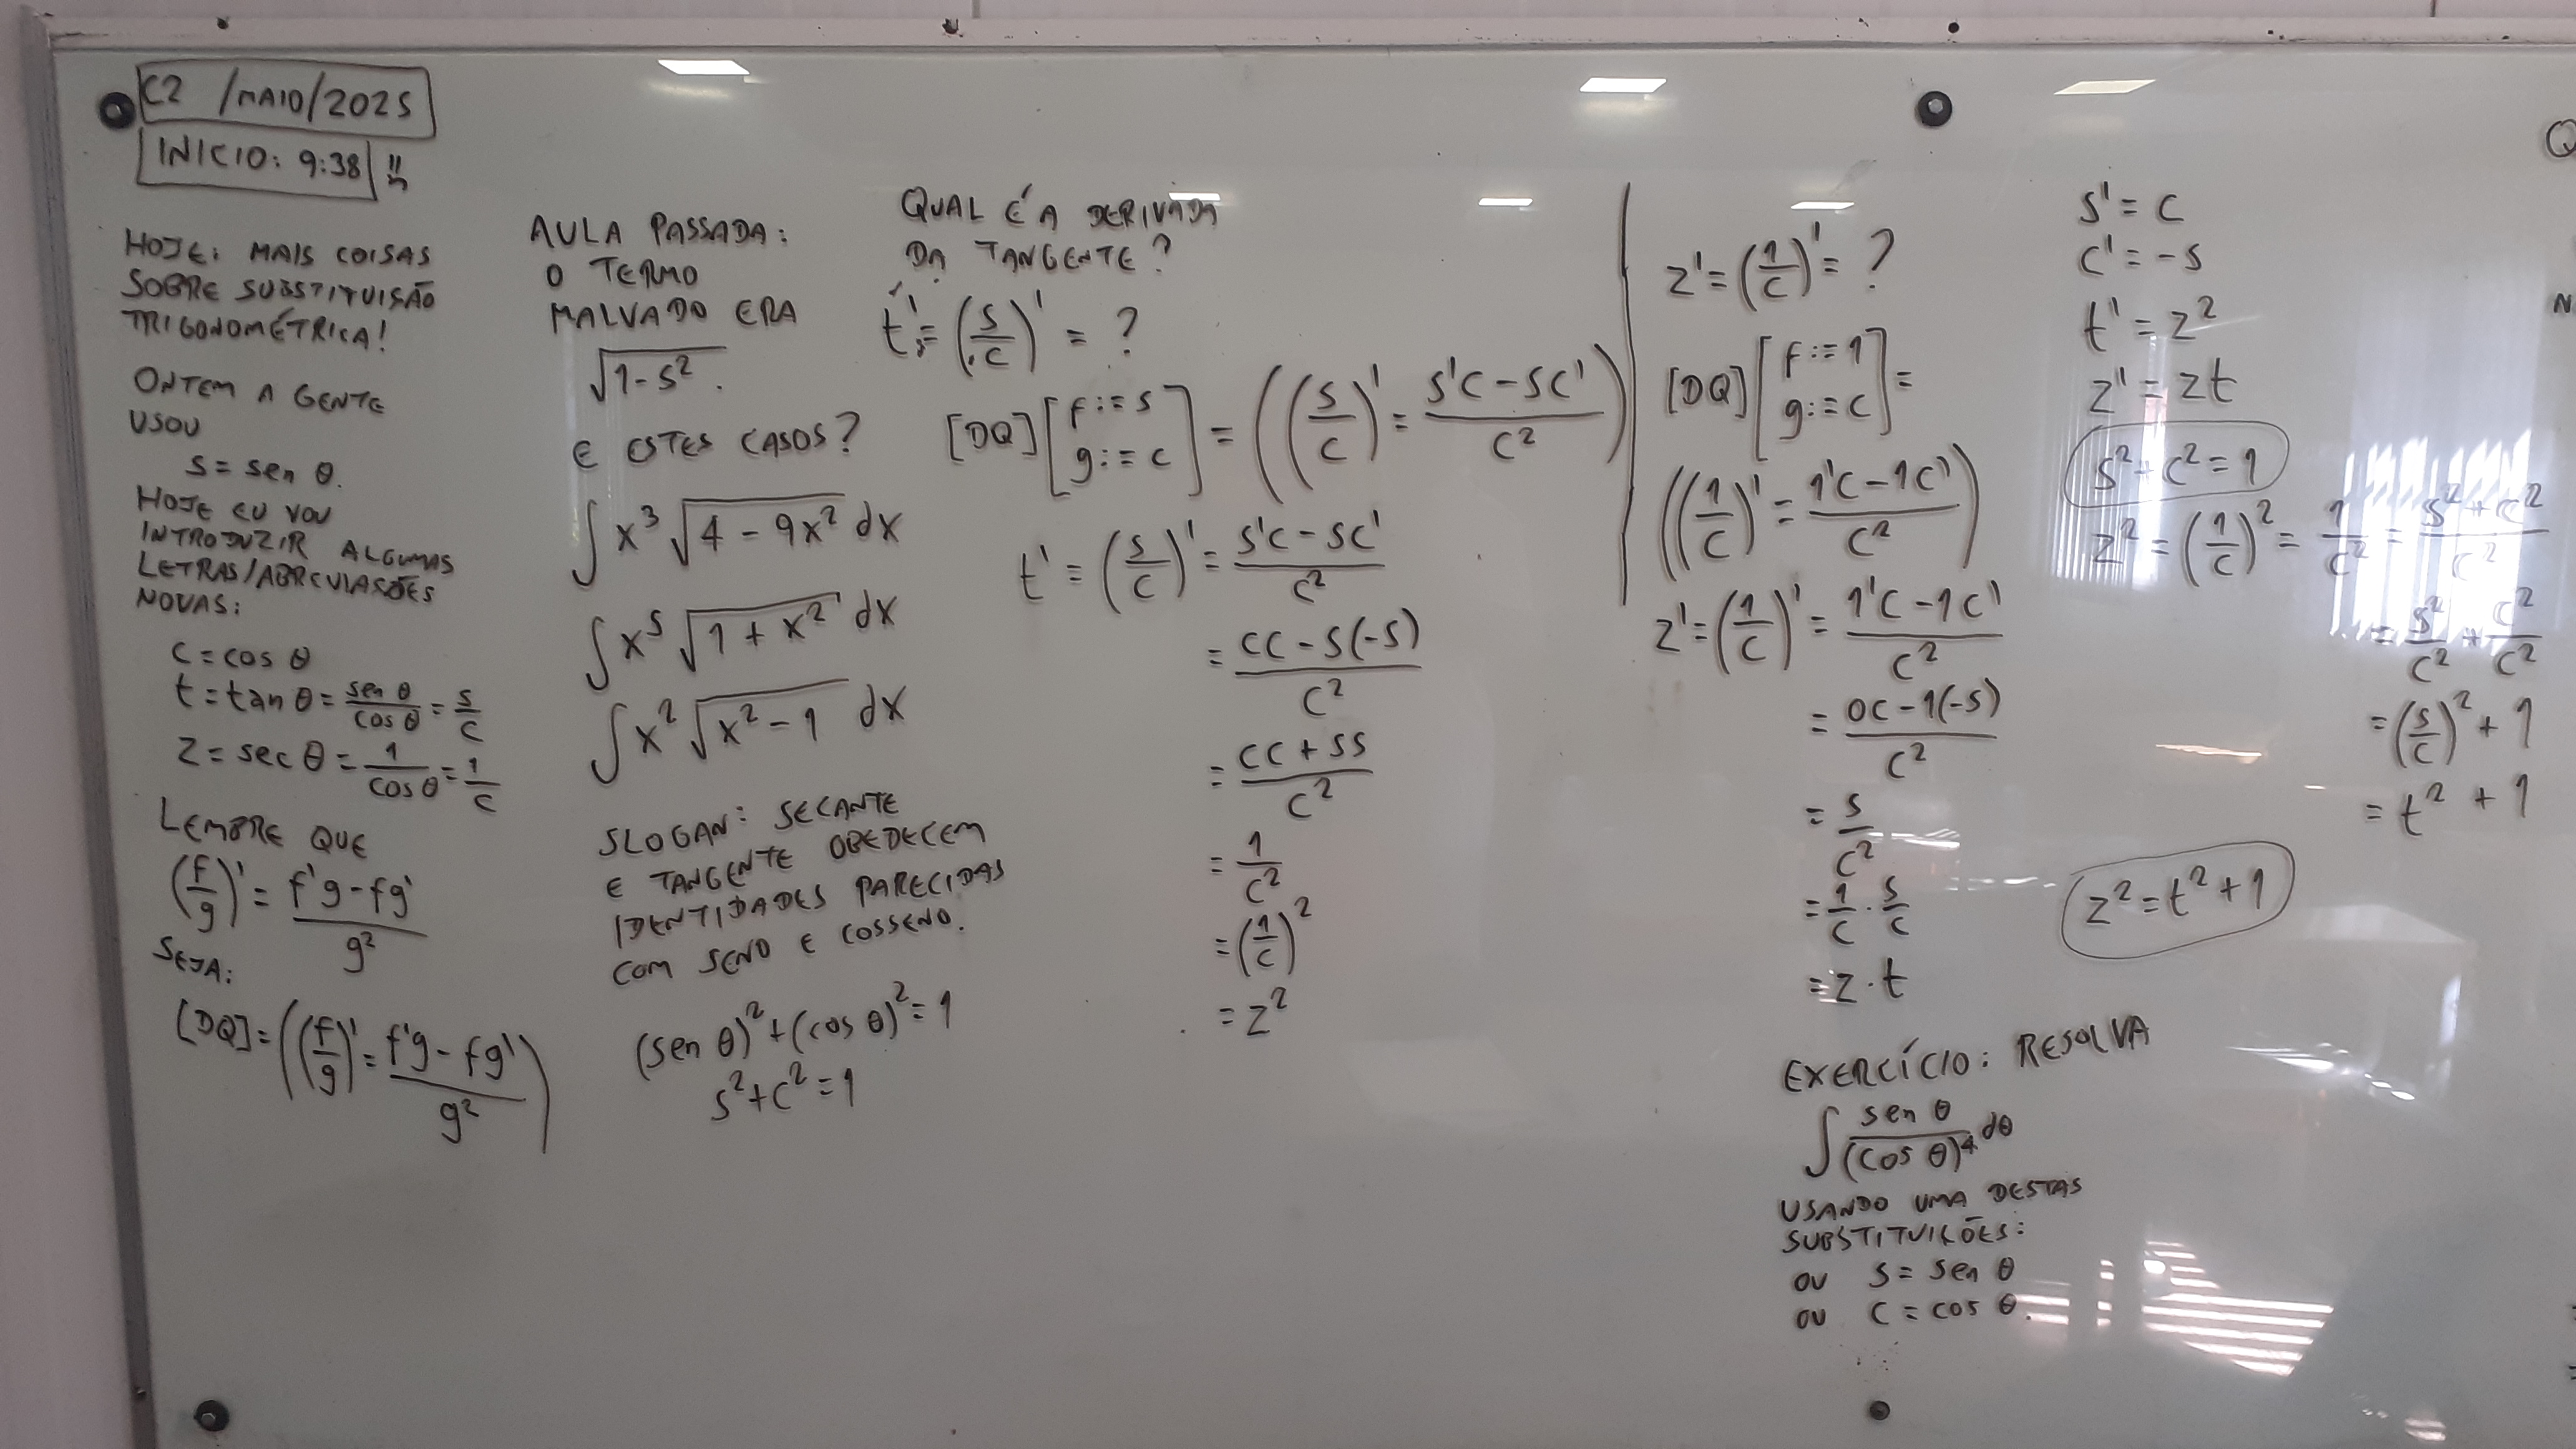 C2 /MAIO/2025
INICIO: 9:38 !!
HOJE: MAIS COISAS
SOBRE SUBSTITUIÇÃO
TRIGONOMÉTRICA!
ONTEM A GENTE
USOU
s = sen θ.
HOJE EU VOU
INTRODUZIR ALGUMAS
LETRAS/ABREVIAÇÕES
NOVAS:
c = cos θ
t = tan θ = sen θ / cos θ = s/c
z = sec θ = 1 / cos θ = 1/c
LEMBRE QUE
(f/g)' = (f'g - fg') / g²
SEJA:
[DQ] = ((f/g)' = (f'g - fg') / g²)
AULA PASSADA:
O TERMO
MALVADO ERA
√(1-s²).
E ESTES CASOS?
∫ x³ √(4 - 9x²) dx
∫ x⁵ √(1 + x²) dx
∫ x² √(x² - 1) dx
SLOGAN: SECANTE
E TANGENTE OBEDECEM
IDENTIDADES PARECIDAS
COM SENO E COSSENO.
(sen θ)² + (cos θ)² = 1
s² + c² = 1
QUAL É A DERIVADA
DA TANGENTE?
t' = (s/c)' = ?
[DQ] [f := s
g := c] = ((s/c)' = (s'c - sc') / c²)
t' = (s/c)' = (s'c - sc') / c²
= (cc - s(-s)) / c²
= (cc + ss) / c²
= 1/c²
= (1/c)²
= z²
z' = (1/c)' = ?
[DQ] [f := 1
g := c] =
((1/c)' = (1'c - 1c') / c²)
z' = (1/c)' = (1'c - 1c') / c²
= (0c - 1(-s)) / c²
= s/c²
= 1/c · s/c
= z · t
EXERCÍCIO: RESOLVA
∫ sen θ / (cos θ)⁴ dθ
USANDO UMA DESTAS
SUBSTITUIÇÕES:
OU s = sen θ
OU c = cos θ.
s' = c
c' = -s
t' = z²
z' = zt
s² + c² = 1
z² = (1/c)² = 1/c² = (s² + c²) / c²
= s²/c² + c²/c²
= (s/c)² + 1
= t² + 1
z² = t² + 1
Q
N